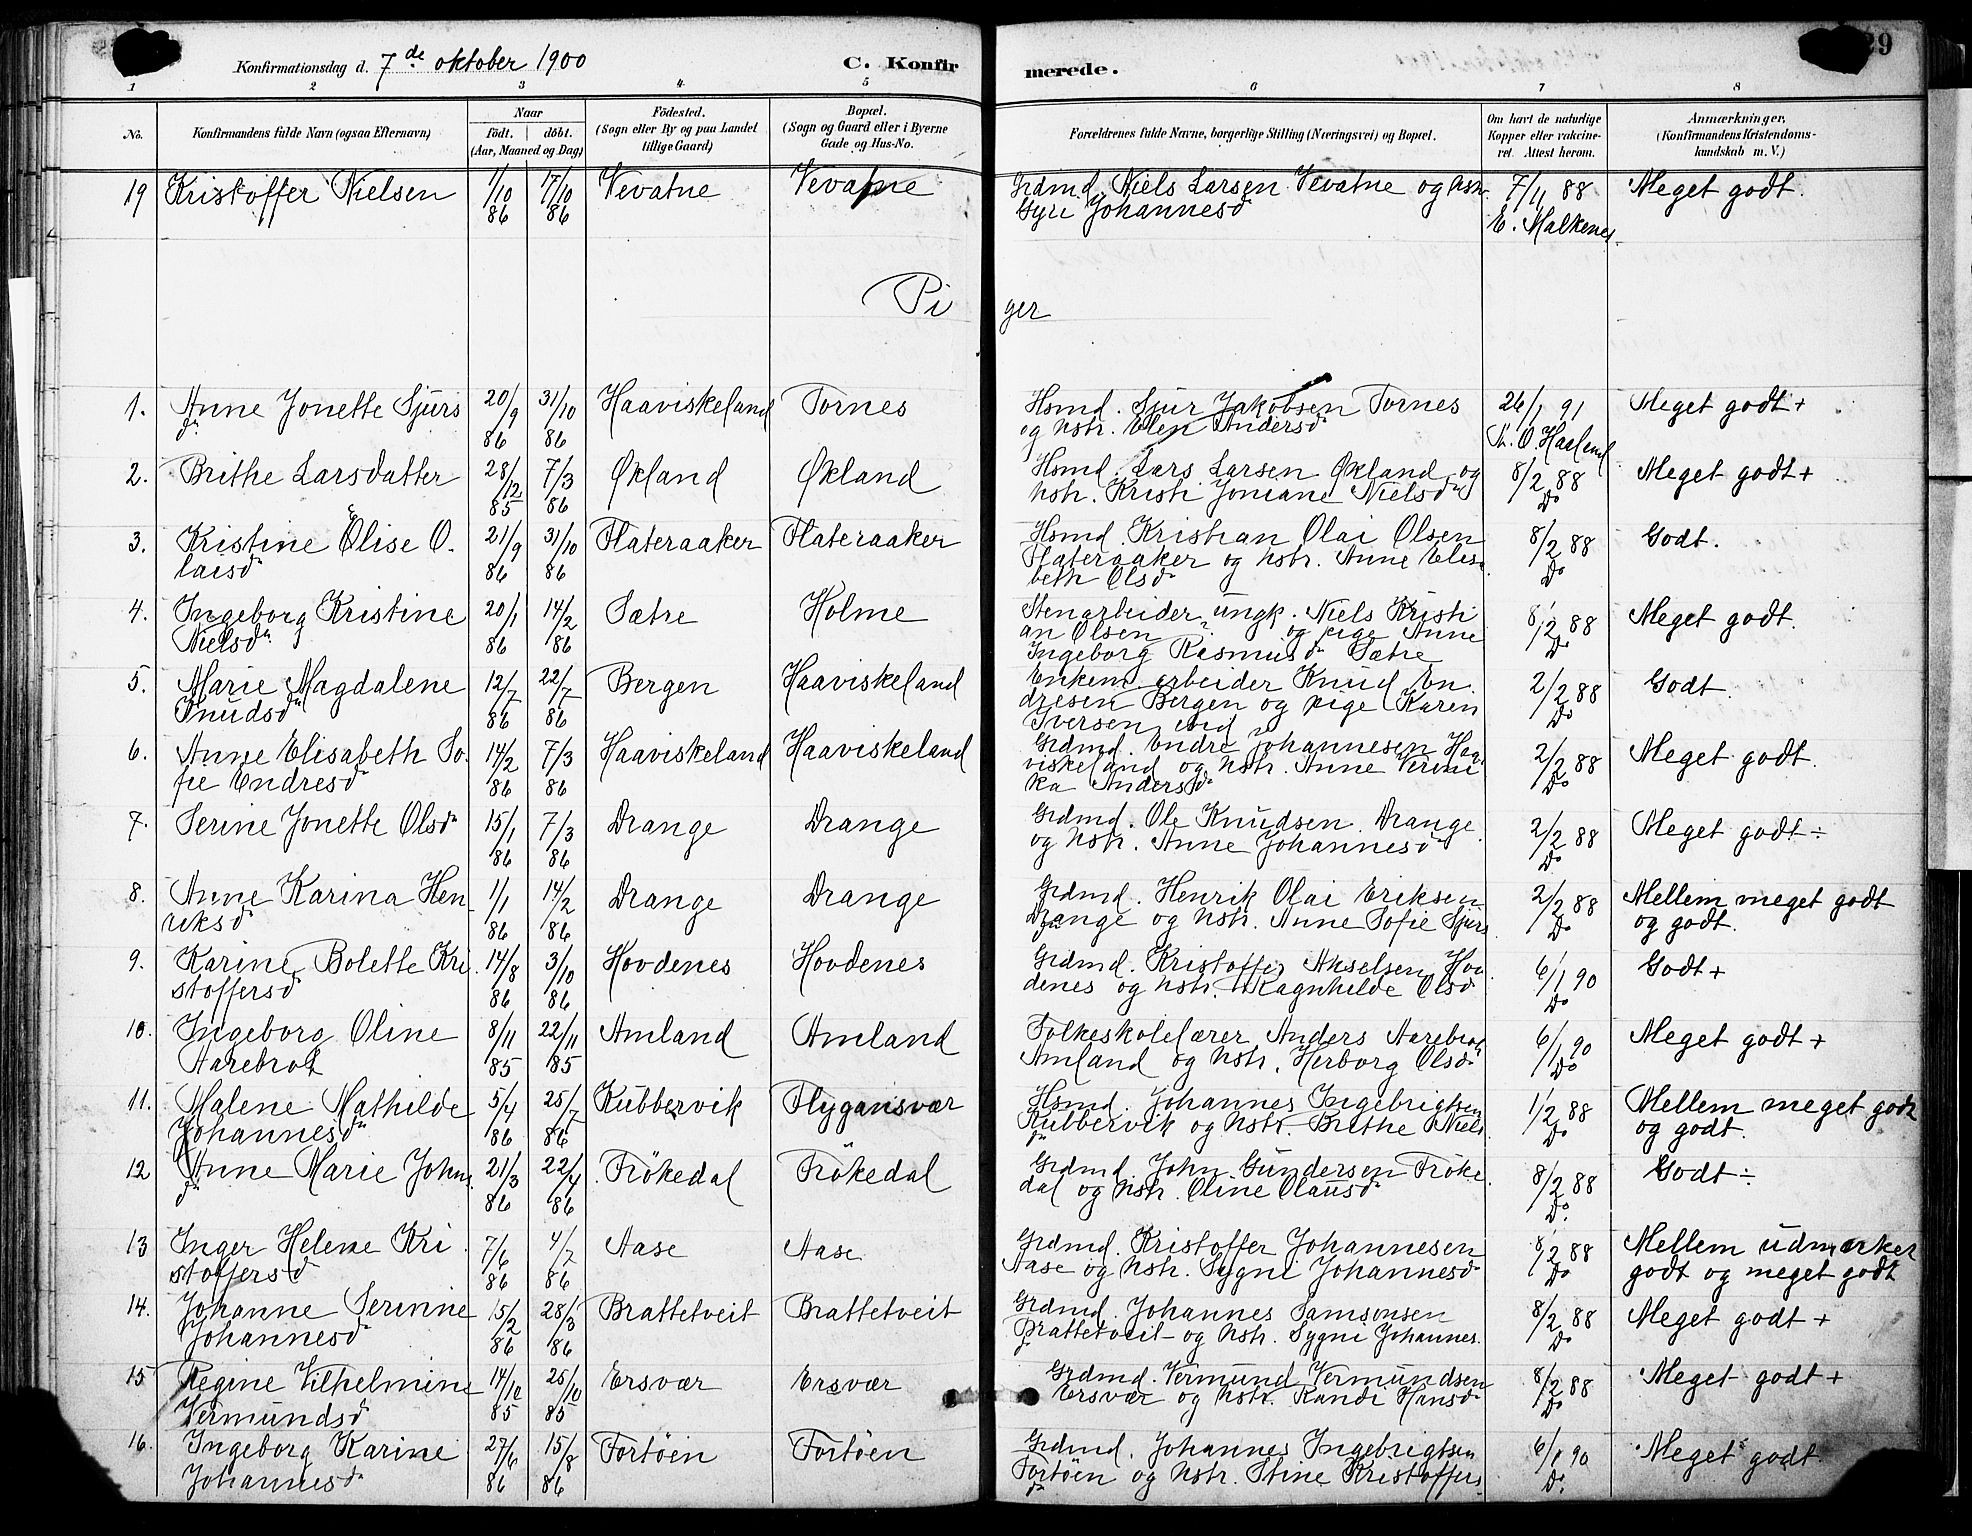 Konfirmationsdag d. 7de oktober 1900 C. Konfirmerede. 29
1 2 3 4 5 6 7 8
No. Konfirmandens fulde Navn (ogsaa Efternavn) Naar født. døbt. (Aar, Maaned og Dag) Fødested. (Sogn eller By og paa Landet tillige Gaard) Bopæl. (Sogn og Gaard eller i Byerne Gade og Hus-No. Forældrenes fulde Navne, borgerlige Stilling (Næringsvei) og Bopæl. Om havt de naturlige Kopper eller vakcineret. Attest herom. Anmærkninger, (Konfirmandens Kristendomskundskab m. V.)
19 Kristoffer Nielsen 1/10 86 17/10 86 Vevatne Vevatne Grdmd. Niels Larsen Vevatne og hstr.
Gyri Johannesdr 7/11 88 E. Malkenes. Meget godt.
Piger
1. Anne Jonette Sjurs
dr 20/9 86 31/10 86 Haaviskeland Tornes Hsmd. Sjur Jakobsen Tornes
og hstr. Elen Andersdr 26/1 91 Meget godt +
2. Brithe Larsdatter 28/12 85 7/3 86 Økland Økland Hsmd. Lars Larsen Økland og
hstr. Kristi Joniane Nielsdr 8/2 88 Do Meget godt +
3. Kristine Elise O.
laisdr 21/9 86 31/10 86 Flateraaker Flateraaker Hsmd. Kristian Olai Olsen
Flateraaker og hstr. Anne Elisa
beth Olsdr 8/2 88 Do Godt.
4. Ingeborg Kristine
Nielsdr 20/1 86 14/2 86 Sætre Holme Stenarbeider ungk. Niels Kristi
an Olsen og pige Anne
Ingeborg Rasmusdr Sætre 8/2 88 Do Meget godt.
5. Marie Magdalene
Knudsdr 12/7 86 22/7 86 Bergen Haaviskeland Enkem. arbeider Knud En
dresen Bergen og pige Karen
Iversen ibid 2/2 88 Do Godt.
6. Anne Elisabeth So.
fie Endresdr 14/2 86 7/3 86 Haaviskeland Haaviskeland Grdmd. Endre Johannesen Haa
viskeland og hstr. Anne Veroni
ka Andersdr 2/2 88 Do Meget godt.
7. Serine Jonette Olsdr 15/1 86 7/3 86 Drange Drange Grdmd. Ole Knudsen Drange
og hstr. Anne Johannesdr 2/2 88 Do Meget godt ÷
8. Anne Karina Hen
riksdr 1/1 86 14/2 86 Drange Drange Grdmd. Henrik Olai Eriksen
Drange og hstr. Anne Sofie Sjurs
dr 2/2 88 Do Mellem meget godt
og godt.
9. Karine Bolette Kri
stoffersdr 14/8 86 3/10 86 Hovdenes Hovdenes Grdmd. Kristoffer Akselsen Hov
denes og hstr. Ragnhilde Olsdr 6/1 90 Do Godt +
10. Ingeborg Oline
Aarebrot 8/11 85 22/11 85 Amland Amland Folkeskolelærer Anders Aarebrot
Amland og hstr. Herborg Olsdr 6/1 90 Do Meget godt +
11. Malene Mathilde
Johannesdr 5/4 86 25/7 86 Kubbervik Flygansvær Hsmd. Johannes Ingebrigtsen
Kubbervik og hstr. Brithe Niels
dr 1/2 88 Do Mellem meget godt
og godt.
12 Anne Marie Johns
dr 21/3 86 22/4 86 Frøkedal Frøkedal Grdmd. John Gundersen Frøke
dal og hstr. Oline Olausdr 8/2 88 Do. Godt ÷
13 Inger Helene Kri
stoffersdr 7/6 86 4/7 86 Aase Aase Grdmd. Kristoffer Johannesen
Aase og hstr. Sygni Johannesdr 8/2 88 Do Mellem udmærket
godt og meget godt
14. Johanne Serinne
Johannesdr 15/2 86 28/3 86 Brattetveit Brattetveit Grdmd. Johannes Samsonsen
Brattetveit og hstr. Sygni Johannes.
dr 8/2 88 Do Meget godt +
15 Regine Vilhelmine
Vermundsdr 14/10 85 25/10 85 Ersvær Ersvær Grdmd. Vermund Vermundsen
Ersvær og hstr. Randi Hansdr 8/2 88 Do Meget godt +
16. Ingeborg Karine
Johannesdr 27/6 86 15/8 86 Fortøen Fortøen Grdmd. Johannes Ingebrigtsen
Fortøen og hstr. Stine Kristoffers
dr 6/1 90 Do. Meget godt.